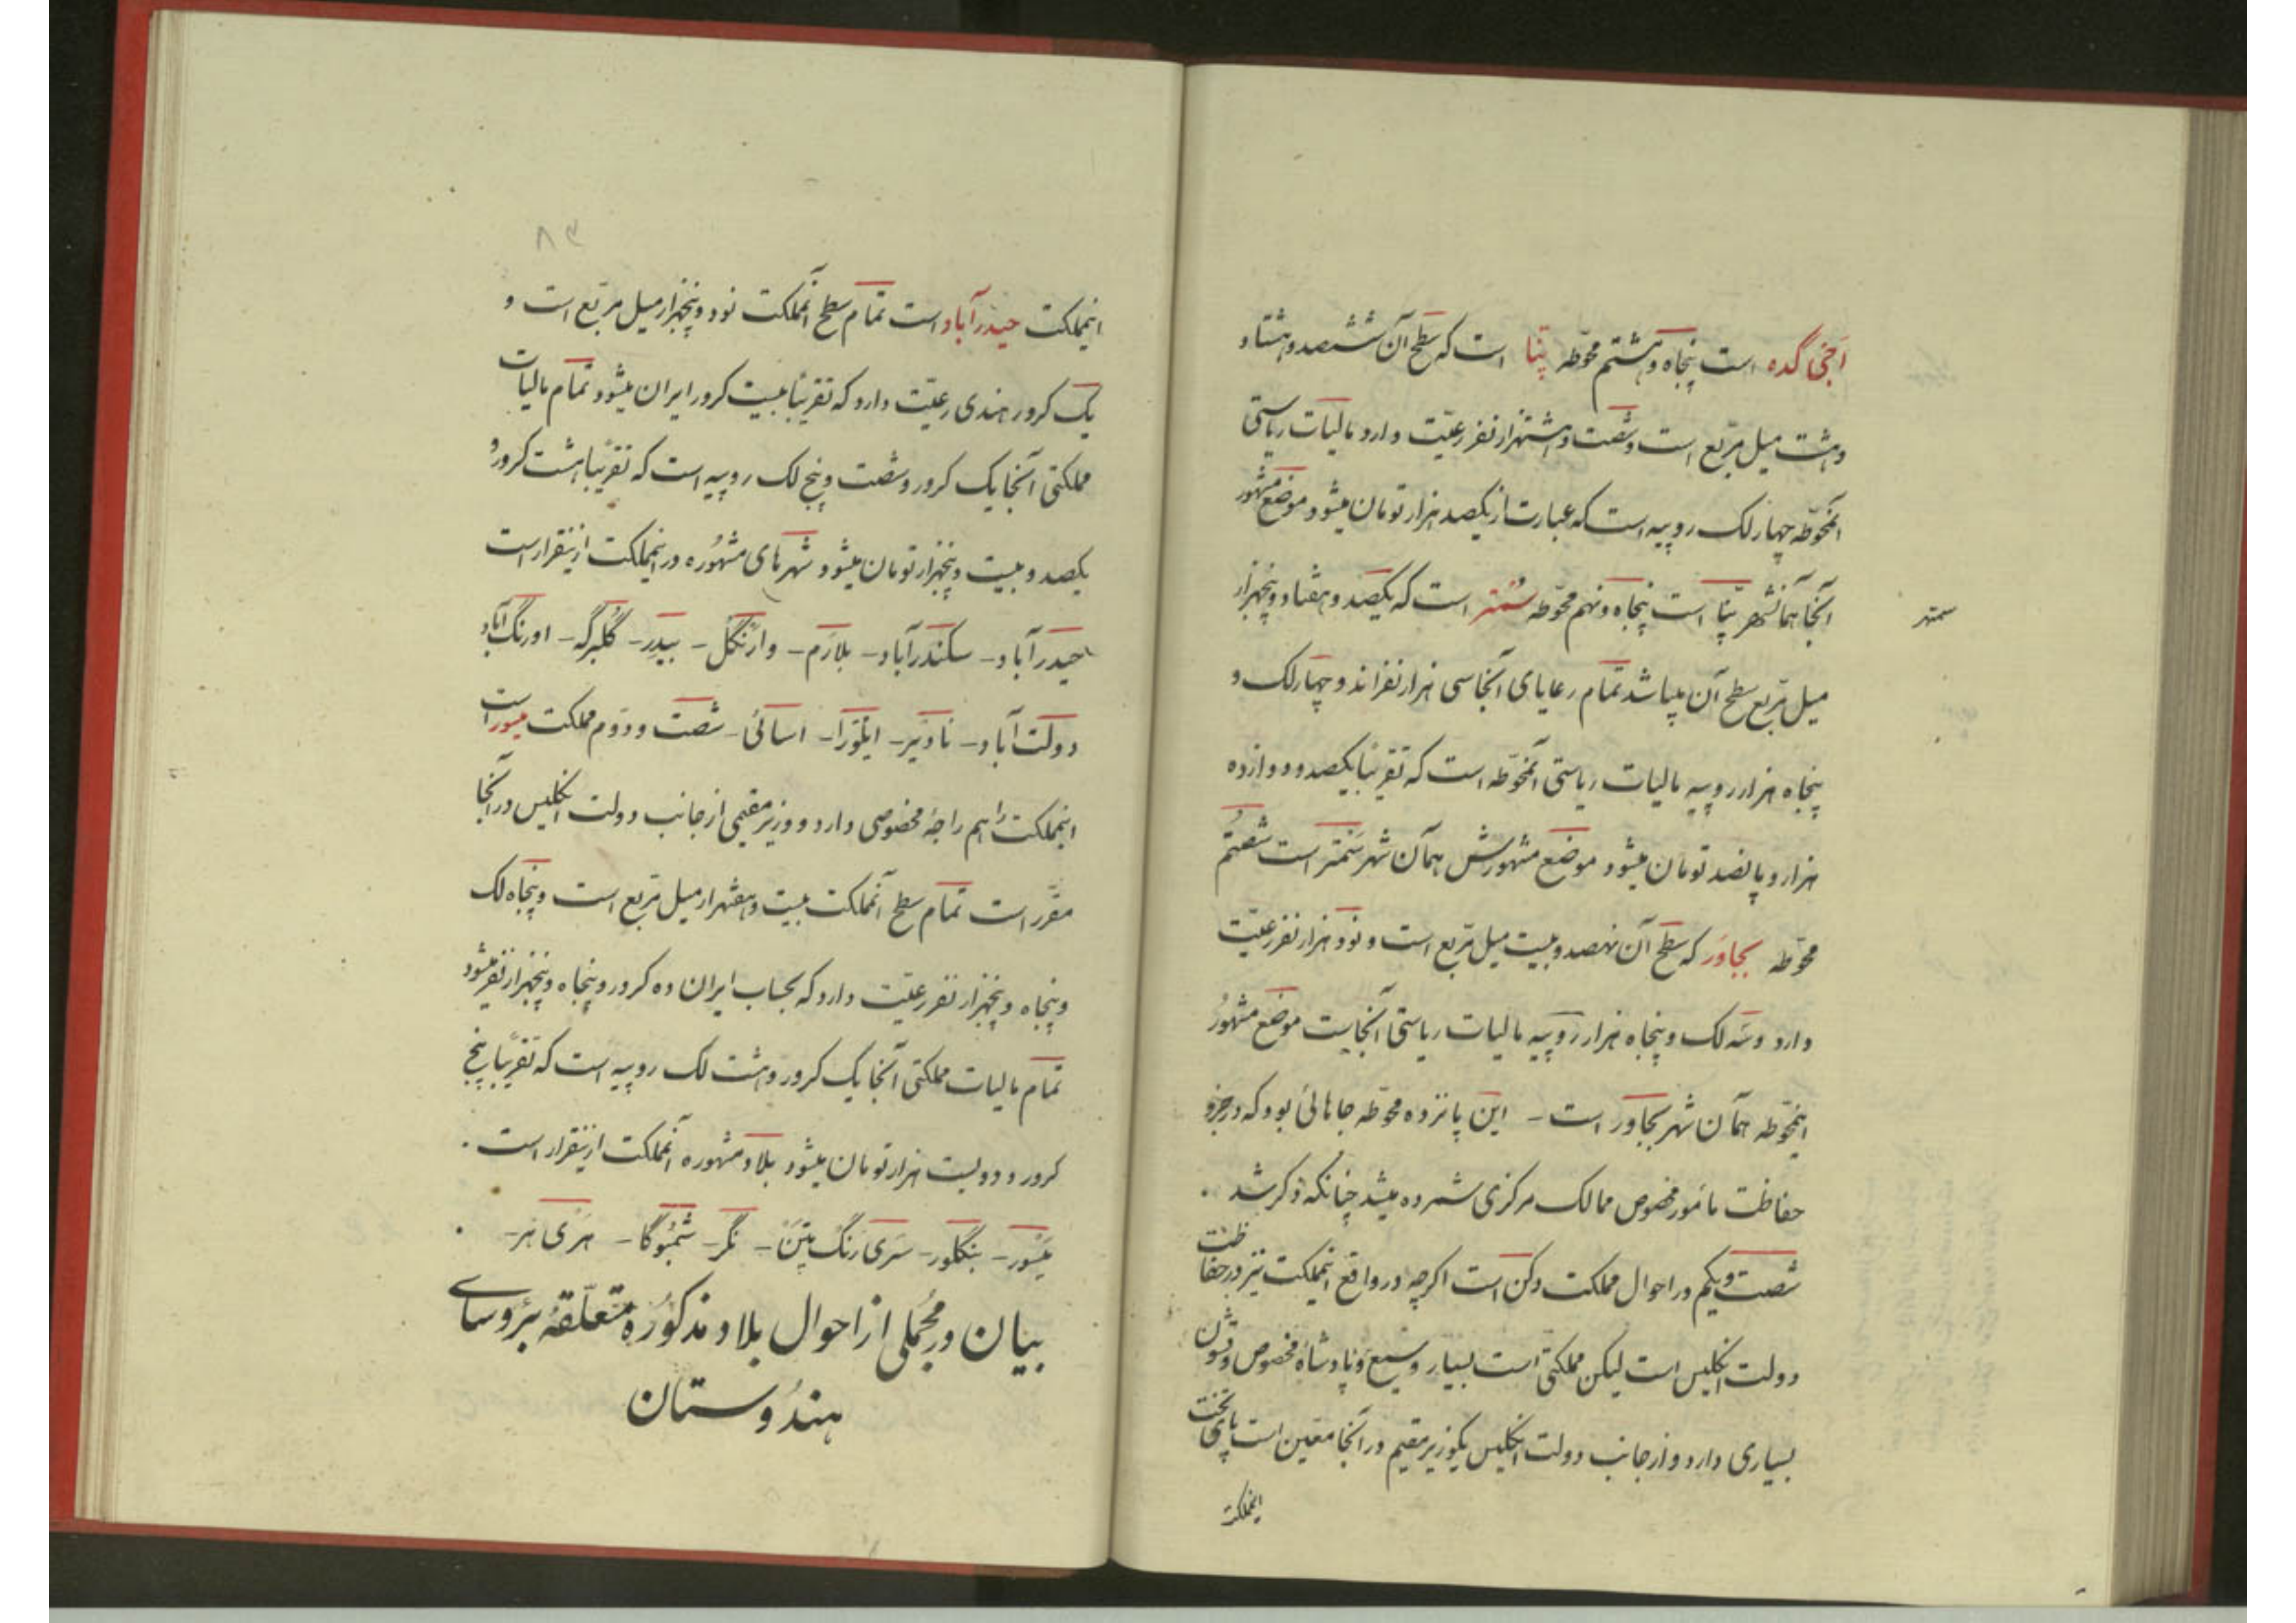 اجی گده است پنجاه و هشتم محوّطه پنا است که سطح آن ششصد و هشتاد
و هشت میل مربّع است و شصت و هشتهزار نفر رعیّت دارد مالیات ریاستی
آنمحوّطه چهار لک روپیه است که عبارت از یکصد هزار تومان میشود موضع مشهور
آنجا همانشهر پنّا است پنجاه و نهم محوّطه سمتر است که یکصد و هفتاد و پنجهزار
سمتهر
میل مربّع سطح آن میباشد تمام رعایای آنجا سی هزار نفراند و چهار لک و
پنجاه هزار روپیه مالیات ریاستی آنمحوّطه است که تقریبًا یکصد و دوازده
هزار و پانصد تومان میشود موضع مشهورش همآن شهر سَمتر است شصتُم
محوّطه بجاوَر که سطح آن نهصد و بیست میل مربّع است و نود هزار نفر رعیّت
دارد و سَه لک و پنجاه هزار روپیه مالیات ریاستی آنجاست موضع مشهُور
اینمحوّطه همآن شهر بجاور است - این پانزده محوّطه جاهائی بود که در جزو
حفاظت مأمور مخصوص ممالک مرکزی شمرده میشد چنانکه ذکر شد .
شصت و یکم در احوال مملکت دکن است اگرچه در واقع اینملکت نیز در حفاظت
دولت انگلیس است لیکن مملکتی است بسیار وسیع و پادشاه مخصوص و قشون
بسیاری دارد و از جانب دولت انگلیس یکوزیر مقیم در آنجا معیّن است پای تخت
اینملکت
۸۳
اینملکت حیدرآباد است تمام سطح آنملکت نود و پنجهزار میل مربّع است و
یک کرور هندی رعیّت دارد که تقریبًا بیست کرور ایران میشود تمام مالیات
مملکتی آنجا یک کرور و شصت و پنج لک روپیه است که تقریبًا هشت کرور و
یکصد و بیست و پنجهزار تومان میشود شهرهای مشهُوره در اینملکت ازینقرار است
حیدرآباد - سکندرآباد - بلارَم - وارَنگل - بیدر - گلبرگه - اورنگ آباد
دولت آباد - نادیر - ایلورا - اسائی - شصت و دوّم مملکت میسور است
اینملکت را هم راجهٔ مخصوصی دارد و وزیر مقیمی از جانب دولت انگلیس در آنجا
مقرّر است تمام سطح آنملکت بیست و هفتهزار میل مربّع است و پنجاه لک
و پنجاه و پنجهزار نفر رعیّت دارد که بحساب ایران ده کرور و پنجاه و پنجهزار نفر میشود
تمام مالیات مملکتی آنجا یک کرور و هشت لک روپیه است که تقریبًا پنج
کرور و دویست هزار تومان میشود بلاد مشهوره آنملکت ازینقرار است .
میسور - بنگلور - سَری رَنگ پَتَن - نگر - شمُوگا - هَرَی هَر -
بیان در مُجملی از احوال بلاد مذکُورَه متعلّقهٔ برُوسای
هندُوستان